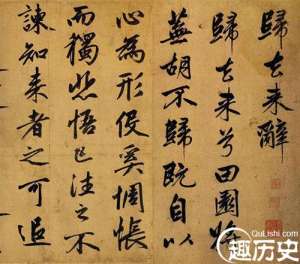 歸去来辭
歸去来兮田園将
蕪胡不歸既自以
心為形役奚惆悵
而獨悲悟已往之不
諫知来者之可追
QuLishi.com
趣历史